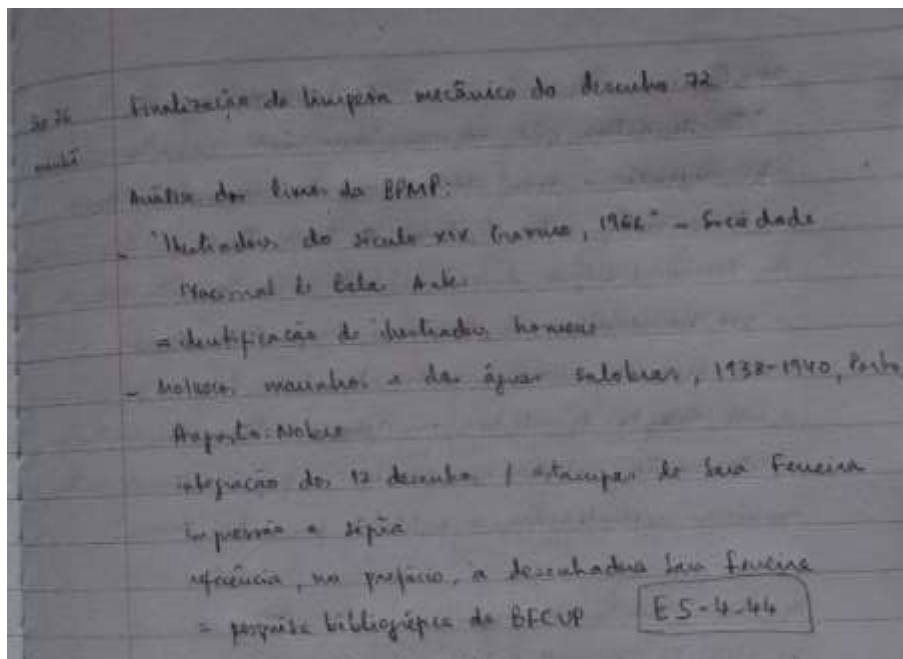 manhã
Finalização da limpeza mecânica do desenho 72
Análise dos livros da BPMP:
- "Ilustradores do século XIX 1966" - Sociedade
Nacional de Belas Artes
= identificação de ilustradores homens
- Moluscos marinhos e das águas salobras, 1938-1940, Porto,
Augusto Nobre
integração dos 12 desenhos / estampas de Ferreira
impressão a sépia
referência, no prefácio, a desenhadora Ferreira
= pesquisa bibliográfica da BFCUP E5-4-44